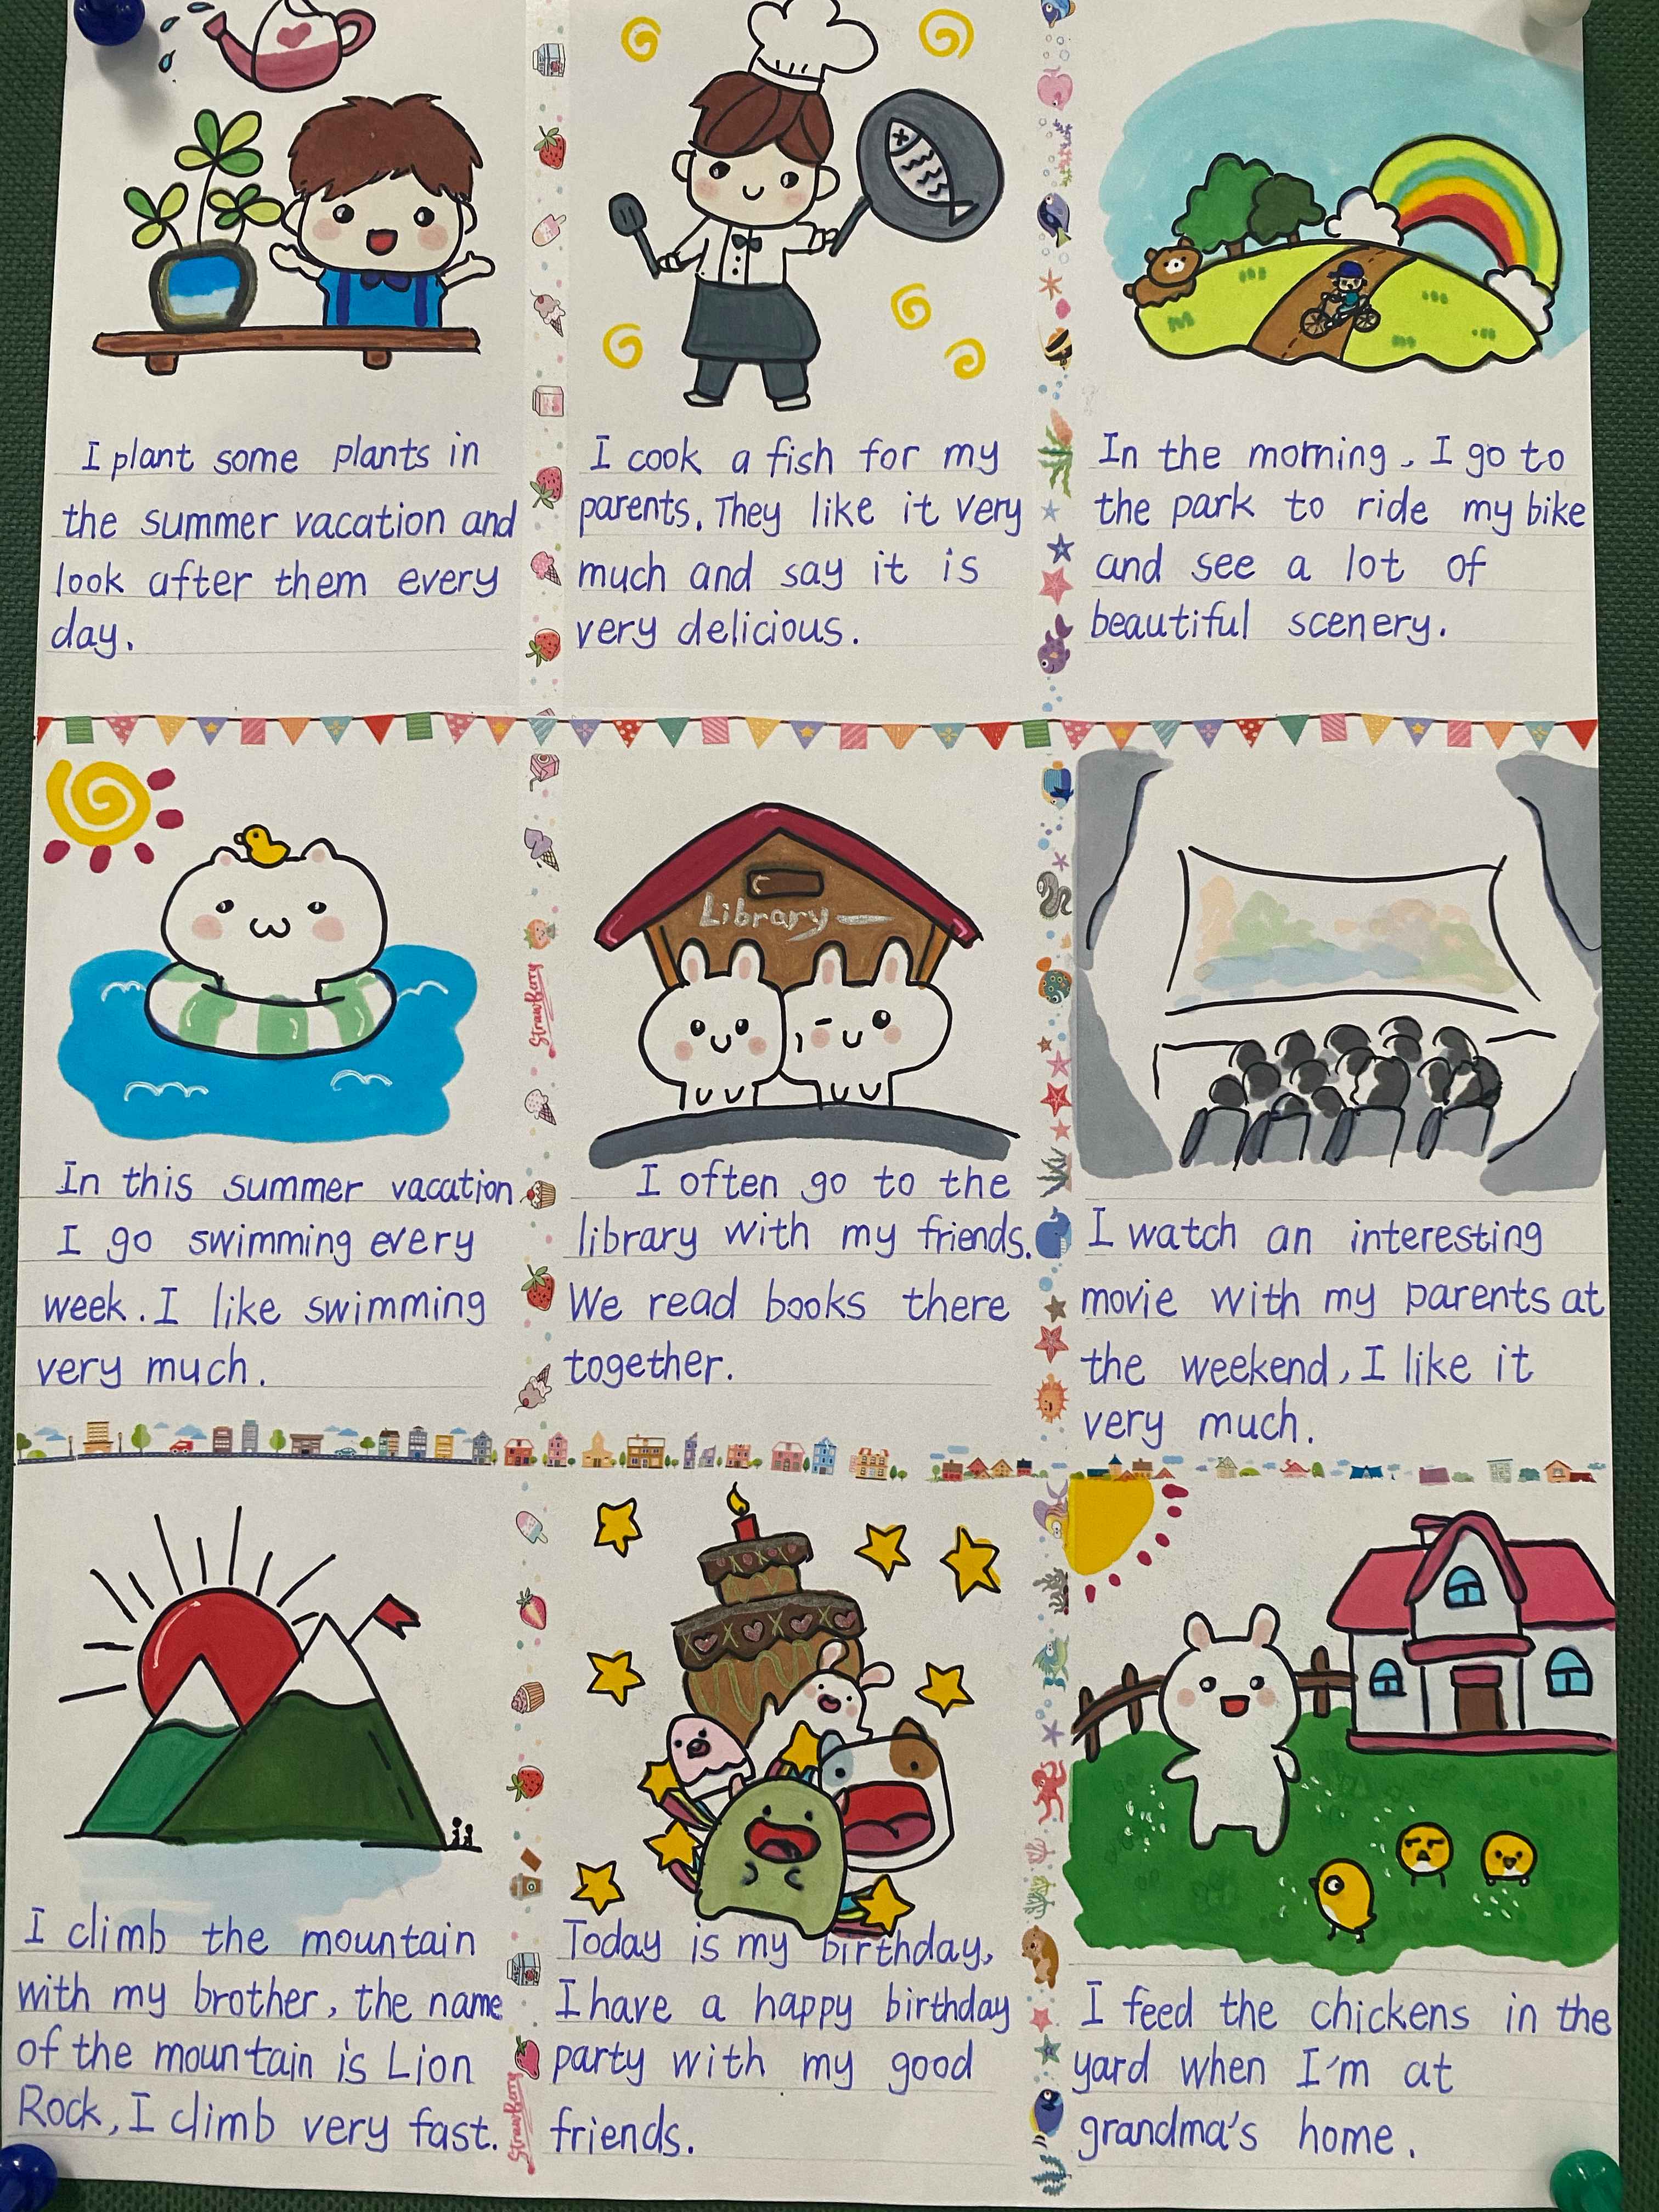 I plant some plants in
the summer vacation and
look after them every
day.
I cook a fish for my
parents. They like it very
much and say it is
very delicious.
In the morning, I go to
the park to ride my bike
and see a lot of
beautiful scenery.
In this summer vacation,
I go swimming every
week. I like swimming
very much.
Library
I often go to the
library with my friends.
We read books there
together.
I watch an interesting
movie with my parents at
the weekend, I like it
very much.
I climb the mountain
with my brother, the name
of the mountain is Lion
Rock, I climb very fast.
Today is my birthday,
I have a happy birthday
party with my good
friends.
I feed the chickens in the
yard when I'm at
grandma's home.
Strawberry
Strawberry